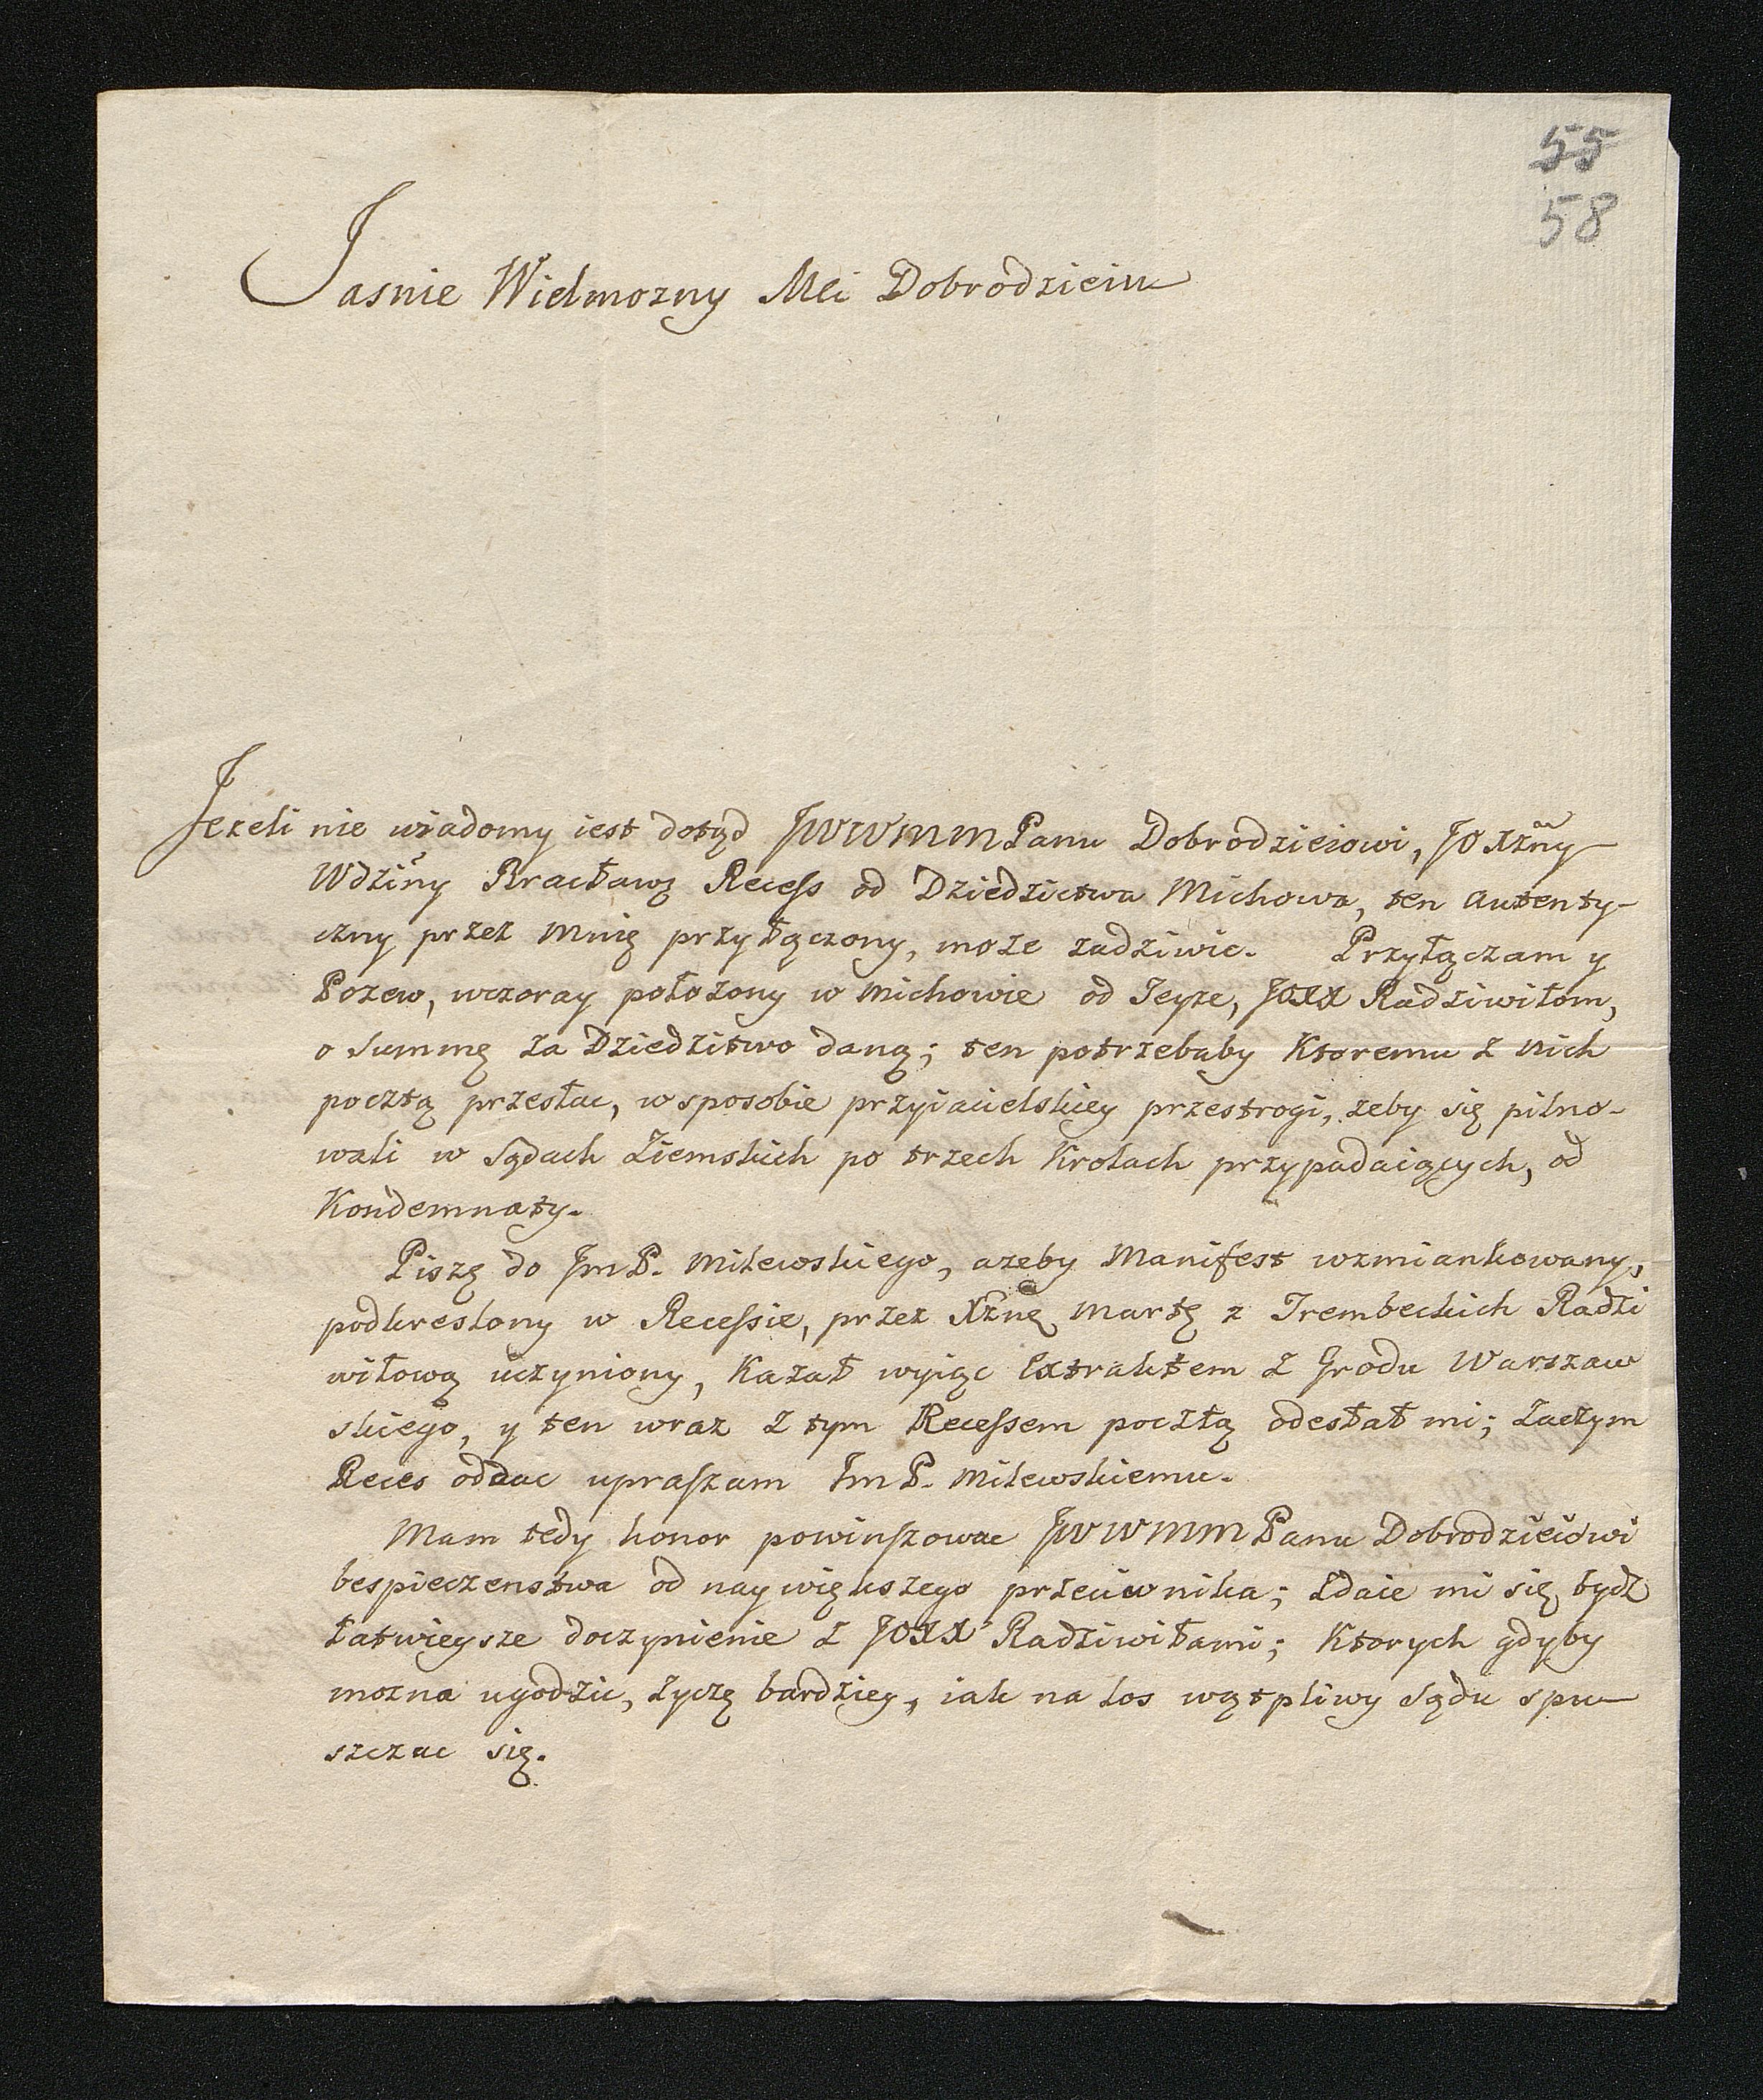 55
58
Jasnie Wielmozny Mci Dobrodzieiu
Jezeli nie wiadomy iest dotąd JWWMM Panu Dobrodzieiowi, JOXżny
Wdźiny Bracławą Recess od Dziedzictwa Michowa, ten autenty-
czny przez mnię przyłączony, moze zadziwic. Przyłączam y
Pozew, wczoray połozony w Michowie od Teyze, JOXX Radziwiłom,
o Summę za Dziedzitwo daną; ten potrzebaby Ktoremu z nich
pocztą przesłac, w sposobie przyiacielskiey przestrogi, zeby się pilno-
wali w Sądach Ziemskich po trzech Krolach przypadaiących, od
Kondemnaty.
Piszę do JmP. Milewskiego, azeby Manifest wzmiankowany,
podkreslony w Recessie, przez Xżnę Martę z Trembeckich Radzi
wiłową uczyniony, Kazał wyiąc Extraktem z Grodu Warszaw
skiego, y ten wraz z tym Recessem pocztą odesłał mi; zaczym
Reces oddac upraszam JmP. Milewskiemu.
Mam tedy honor powinszowac JWWMM Panu Dobrodzieiowi
bespieczenstwa od naywiększego przeciwnika; zdaie mi się bydz
łatwieysze doczynienie z JOXX Radziwiłami; Ktorych gdyby
mozna ugodzic, zyczę bardziey, iak na los wątpliwy Sądu spu-
szczac się.